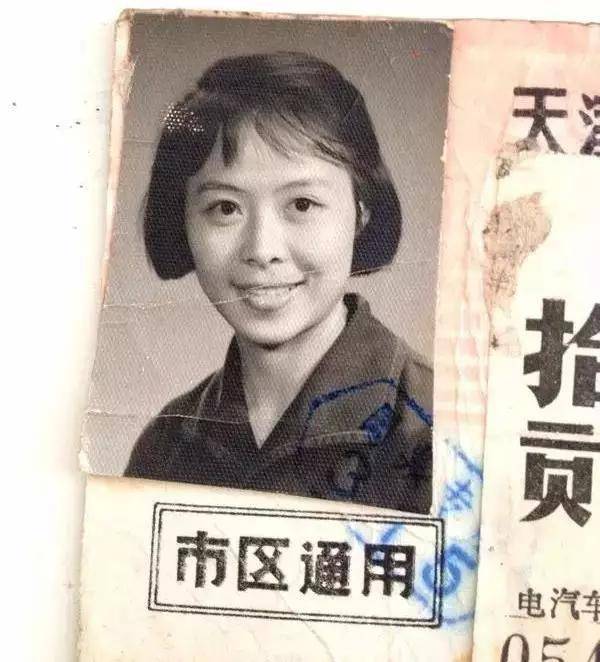 天津
拾
贡
市区通用
电汽车
05